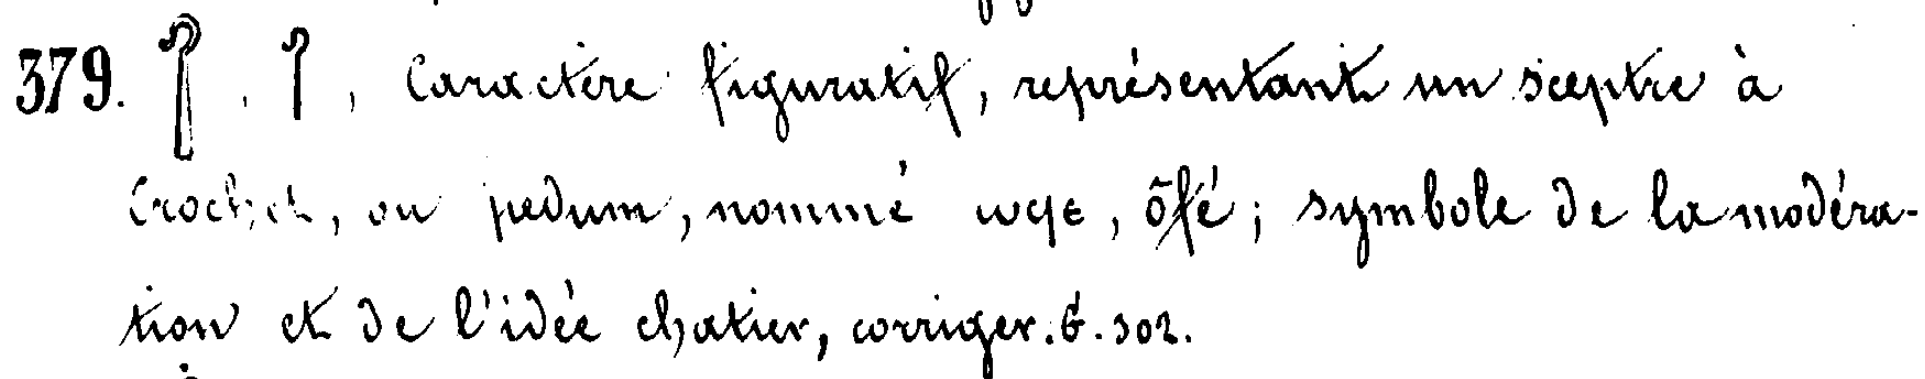 379. 𓋾 . 𓋾 , Caractère figuratif, représentant un sceptre à
Crochet, ou pedum, nommé ⲱϥⲉ, ôfé; symbole de la modéra-
tion et de l'idée chatier, corriger. G. 302.